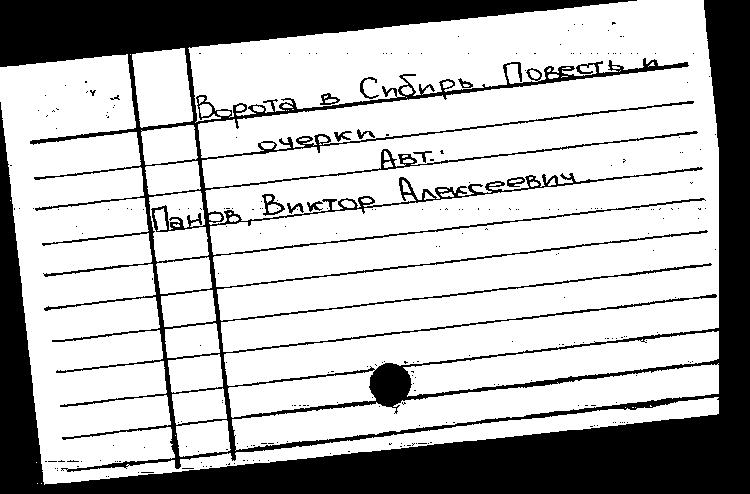 Ворота в Сибирь. Повесть и
очерки.
Авт.:
Панов, Виктор Алексеевич.